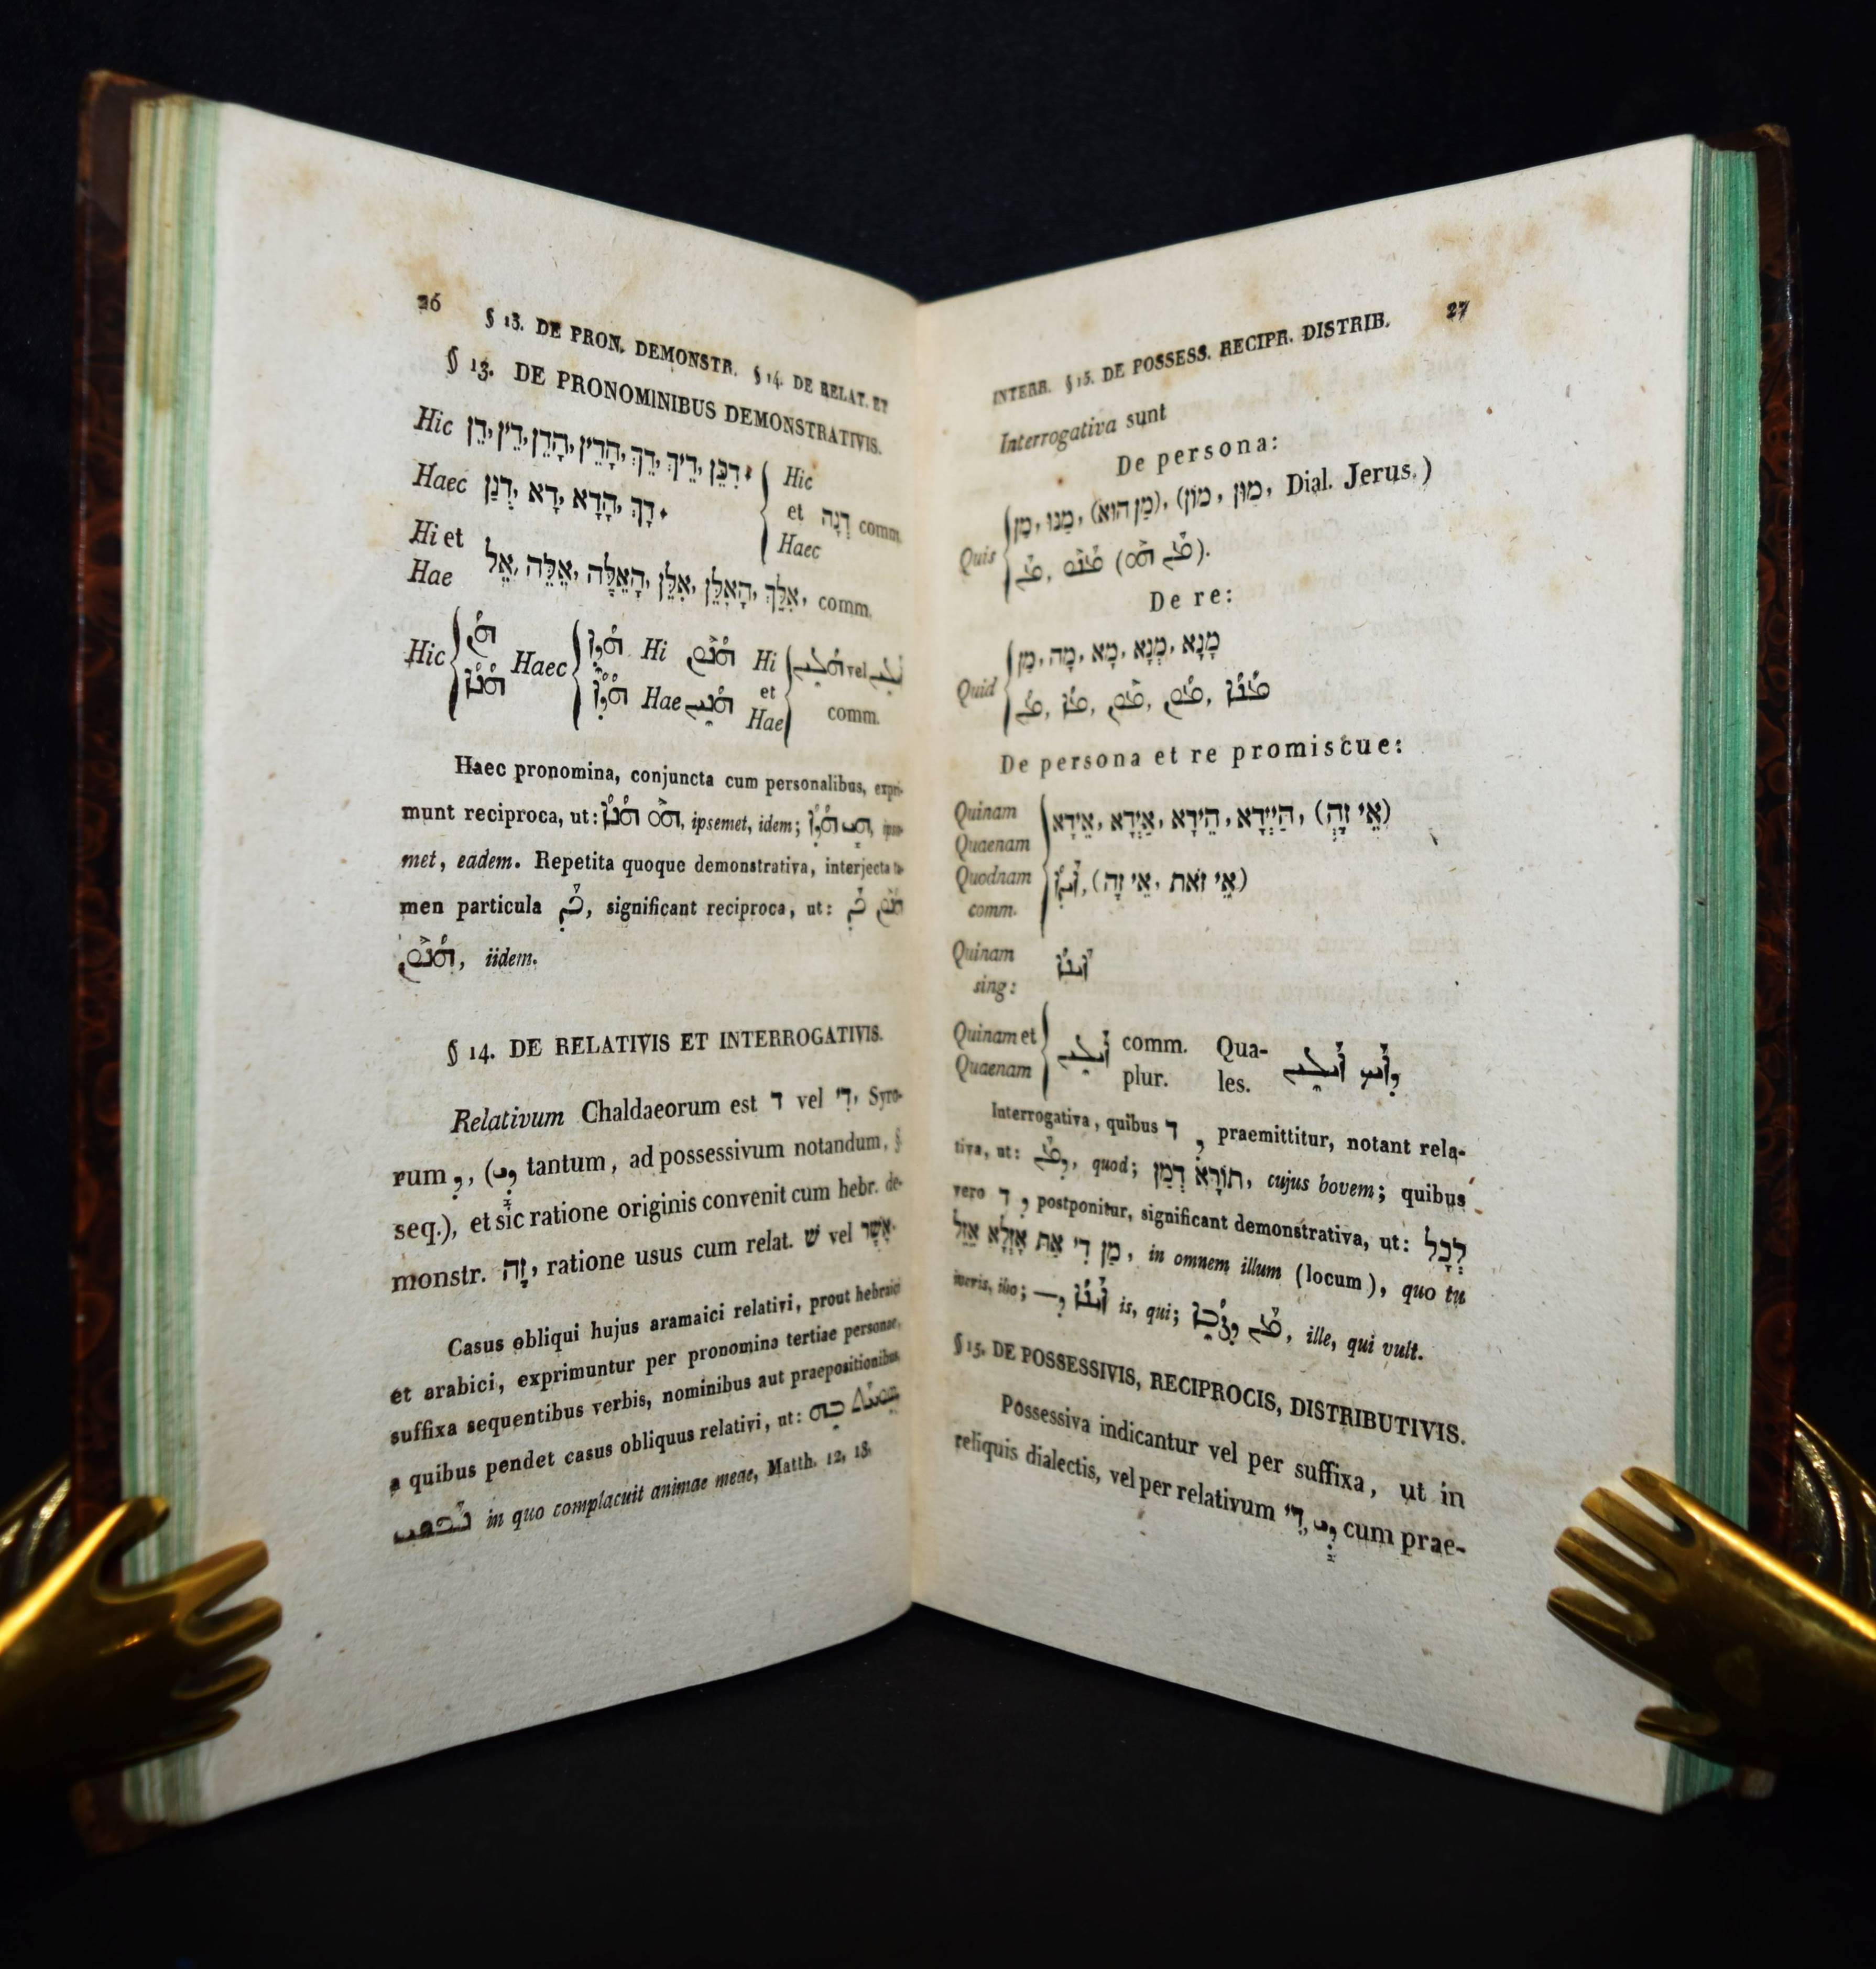 26
§ 13. DE PRON. DEMONSTR. § 14. DE RELAT. ET
§ 13. DE PRONOMINIBUS DEMONSTRATIVIS.
Hic דֵּן, דֵּין, הָדֵן, הָדֵין, דֵּךְ, דֵּיךְ, דִּכֵּן
Haec דָּא, הָדָא, דָּךְ
Hic
et דְּנָה comm.
Haec
Hi et
Hae
אֵל, אִלֵּה, הָאִלֵּה, אִלֵּן, הָאִלֵּן, אִלֵּךְ, comm.
Hic ܗܳܢ ܗܳܢܳܐ Haec ܗܳܕܶܐ ܗܳܕܳܐ Hi ܗܳܢܽܘܢ Hae ܗܳܢܶܝܢ Hi et Hae ܗܳܠܶܝܢ vel comm.
Haec pronomina, conjuncta cum personalibus, expri-
munt reciproca, ut: ܗܽܘ ܗܳܢܳܐ, ipsemet, idem; ܗܺܝ ܗܳܕܶܐ,
met, eadem. Repetita quoque demonstrativa, interjecta ta-
men particula ܟܰܕ, significant reciproca, ut: ܟܰܕ
ܗܳܢܽܘܢ, iidem.
§ 14. DE RELATIVIS ET INTERROGATIVIS.
Relativum Chaldaeorum est ד vel דִּי, Syro-
rum ܕ, (ܕܺܝ tantum, ad possessivum notandum, §
seq.), et sic ratione originis convenit cum hebr. de-
monstr. זֶה, ratione usus cum relat. שׁ vel אֲשֶׁר.
Casus obliqui hujus aramaici relativi, prout hebraici
et arabici, exprimuntur per pronomina tertiae personae,
suffixa sequentibus verbis, nominibus aut praepositionibus
a quibus pendet casus obliquus relativi, ut:
ܢܰܦܫܝ in quo complacuit animae meae, Matth. 12, 18.
27
INTERR. § 15. DE POSSESS. RECIPR. DISTRIB.
Interrogativa sunt
De persona:
Quis מַן, מַנוּ, (מַן הוּא), (מוֹן, מוּן, Dial. Jerus.)
ܡܰܢ, ܡܰܢܽܘ (ܡܰܢ ܗܽܘ).
De re:
Quid מַן, מָה, מָא, מְנָא, מָנָא
ܡܳܢ, ܡܳܐ, ܡܽܘܢ, ܡܳܘܢ, ܡܳܢܳܐ
De persona et re promiscue:
Quinam
Quaenam
Quodnam
comm.
אֵידָא, אַיְדָא, הֵידָא, הַיְידָא, (אֵי זֶה)
ܐܰܝܕܳܐ, (אֵי זֶה, אֵי זֹאת)
Quinam
sing: ܐܰܝܢܳܐ
Quinam et
Quaenam
ܐܰܝܠܶܝܢ comm.
plur.
Qua-
les.
ܕܰܐܝܟ ܐܰܝܠܶܝܢ
Interrogativa, quibus ד ܕ praemittitur, notant rela-
tiva, ut: ܕܡܰܢ, quod; תּוֹרָא דְמַן, cujus bovem; quibus
vero ד ܕ postponitur, significant demonstrativa, ut: לְכָל
מַן דִּי אַתְּ אָזְלָא אֵזֵל, in omnem illum (locum), quo tu
iveris, ibo; ܐܰܝܢܳܐ ܕ— is, qui; ܡܰܢ ܕܨܳܒܶܐ, ille, qui vult.
§ 15. DE POSSESSIVIS, RECIPROCIS, DISTRIBUTIVIS.
Possessiva indicantur vel per suffixa, ut in
reliquis dialectis, vel per relativum דִּי, ܕܺܝ cum prae-